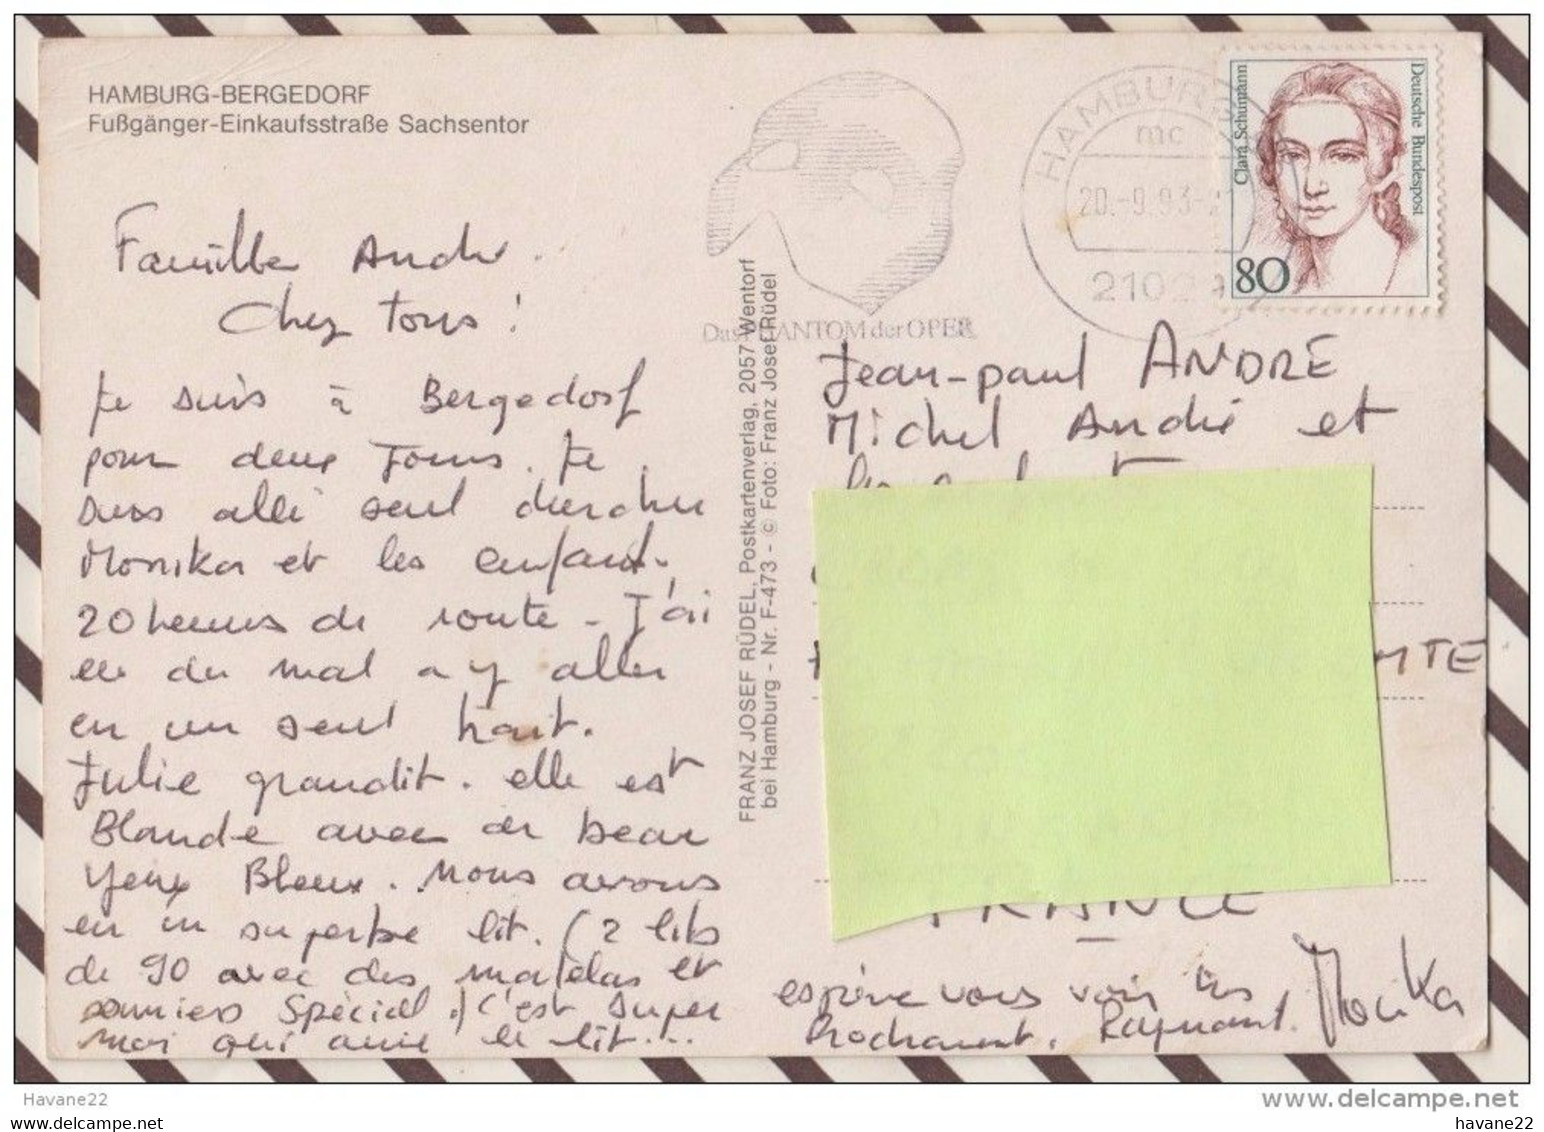 HAMBURG-BERGEDORF
Fußgänger-Einkaufsstraße Sachsentor
Das PHANTOM der OPER
HAMBURG
mc
20.-9.93-
21029
Clara Schumann
Deutsche Bundespost
80
Famille André.
Chez Tous !
Je suis à Bergedorf
pour deux Jours. Je
suis allé seul chercher
Monika et les enfants.
20 heures de route - J'ai
eu du mal a y aller
en un seul trait.
Julie grandit. elle est
Blonde avec de beau
yeux Bleux. Nous avons
eu un superbe lit. (2 lits
de 90 avec des matelas et
sommiers Spécial.) c'est super
moi qui aime le lit...
FRANZ JOSEF RÜDEL, Postkartenverlag, 2057 Wentorf
bei Hamburg - Nr. F-473 - © Foto: Franz Josef Rüdel
Jean-paul ANDRE
Michel André et
MTE
FRANCE
espère vous voir
Prochainement. Raymond. Monika
Havane22
www.delcampe.net
havane22